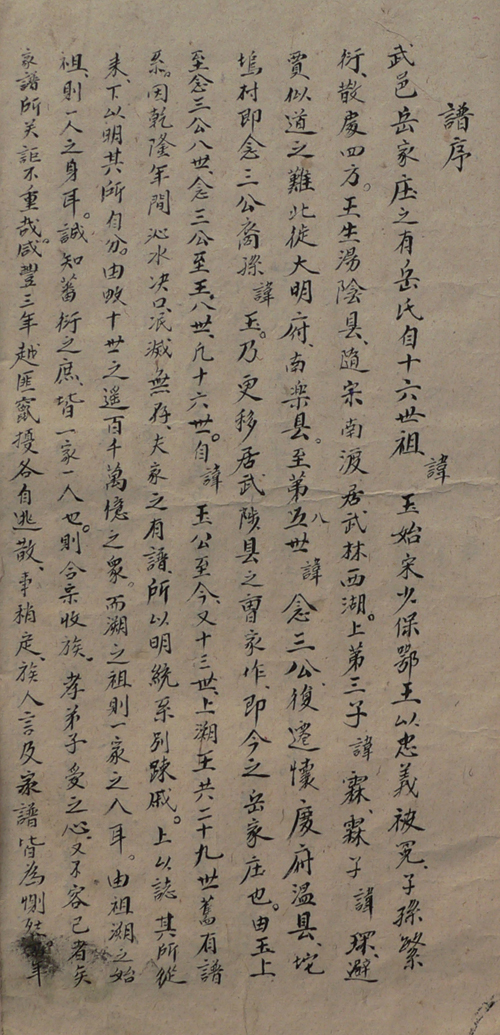 譜序
武邑岳家庄之有岳氏自十六世祖 諱 玉始宋少保鄂王以忠義被冤、子孫繁
衍、散處四方。王生湯陰县、隨宋南渡居武林西湖。上第三子 諱 霖、霖子 諱 琛、避
賈似道之難北徙大明府、南樂县。至第五八世 諱 念三公、復遷懷慶府温县、坨
塢村即念三公裔孫 諱 玉。乃更移居武陟县之曹家作、即今之岳家庄也。由玉上
至念三公八世、念三公至王、八世、凡十六世。自 諱 玉公至今、又十三世、上溯王共二十九世旧有譜
系。因乾隆年間沁水决口、泯滅無存、夫家之有譜、所以明統系別踈戚。上以誌其所從
来、下以明其所自分。由數十世之遥百千萬億之衆。而溯之祖則一家之人耳。由祖溯之始
祖、則一人之身耳。誠知蕃衍之庶、皆一家一人也。則合宗收族、孝弟子受之心、又不容已者矣
家譜所关詎不重哉。咸豐三年越匪竄擾各自逃散、事稍定、族人言及家譜皆為惻然年